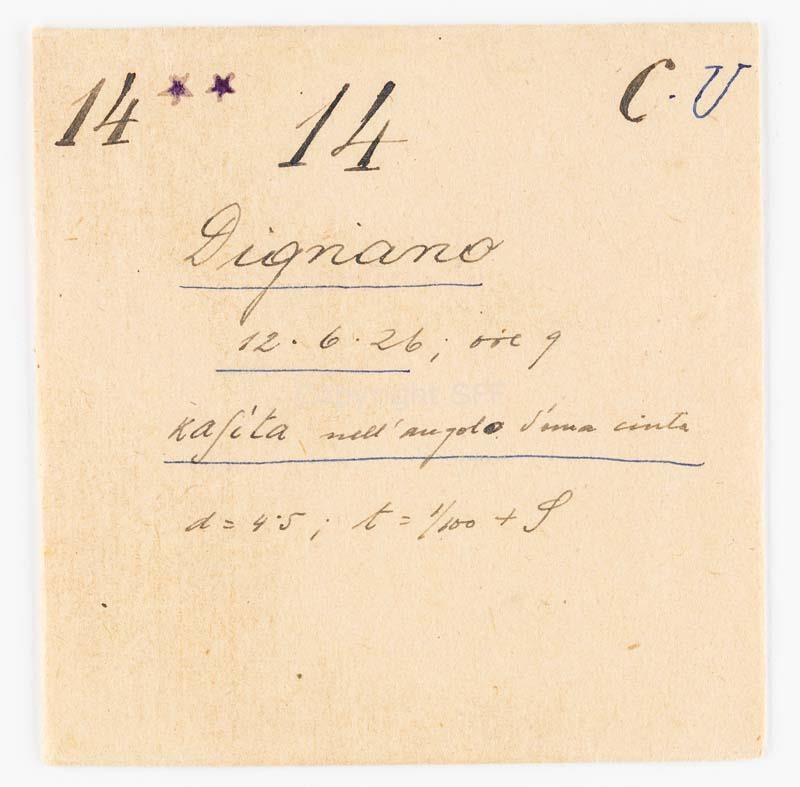 14 ** 14 C. U
Dignano
12. 6. 26; ore 9
Kažita nell'angolo d'una cinta
Copyright SFF
d = 4.5; t = 1/100 + S